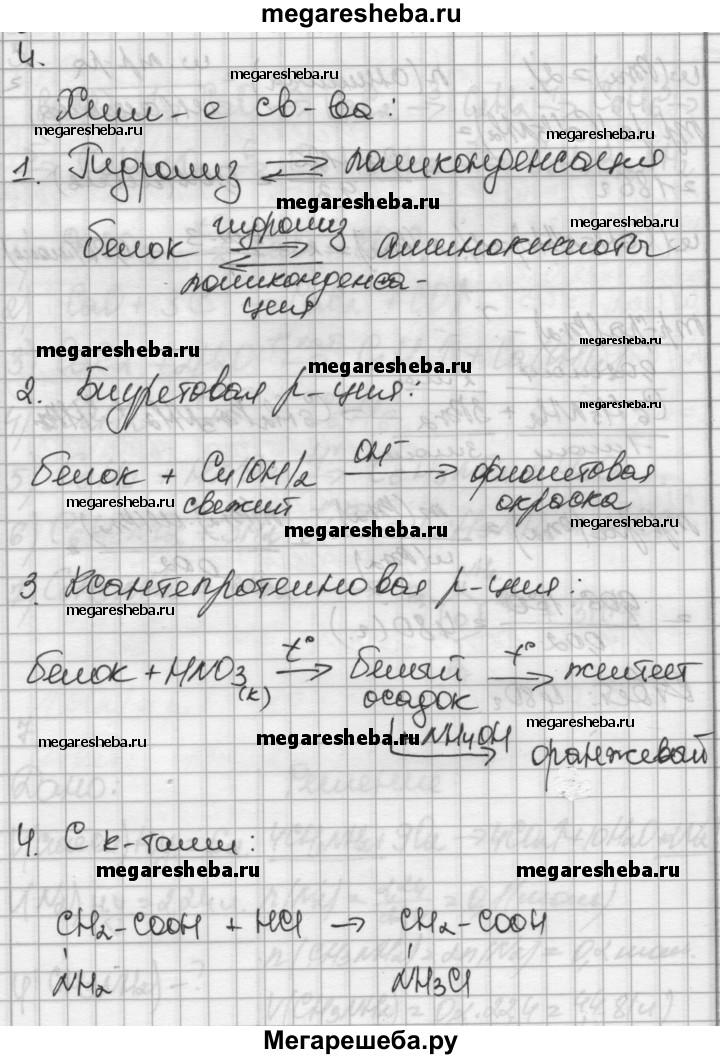 megaresheba.ru
4.
megaresheba.ru
Хим-е св-ва:
megaresheba.ru
megaresheba.ru
1. Гидролиз ⇄ поликонденсация
megaresheba.ru
megaresheba.ru
белок гидролиз ⇄ аминокислоты
поликонденса-
ция
megaresheba.ru
megaresheba.ru
2. Биуретовая р-ция:
megaresheba.ru
белок + Cu(OH)2 OH⁻ → фиолетовая
megaresheba.ru свежий окраска
megaresheba.ru
megaresheba.ru
3. Ксантепротеиновая р-ция:
megaresheba.ru
белок + HNO3 (к) t° → белый t° → желтеет
осадок
megaresheba.ru
NH4OH → оранжевый
megaresheba.ru
megaresheba.ru
megaresheba.ru
4. С к-тами:
megaresheba.ru
megaresheba.ru
CH2-COOH + HCl → CH2-COOH
NH2 NH3Cl
Мегарешеба.ру